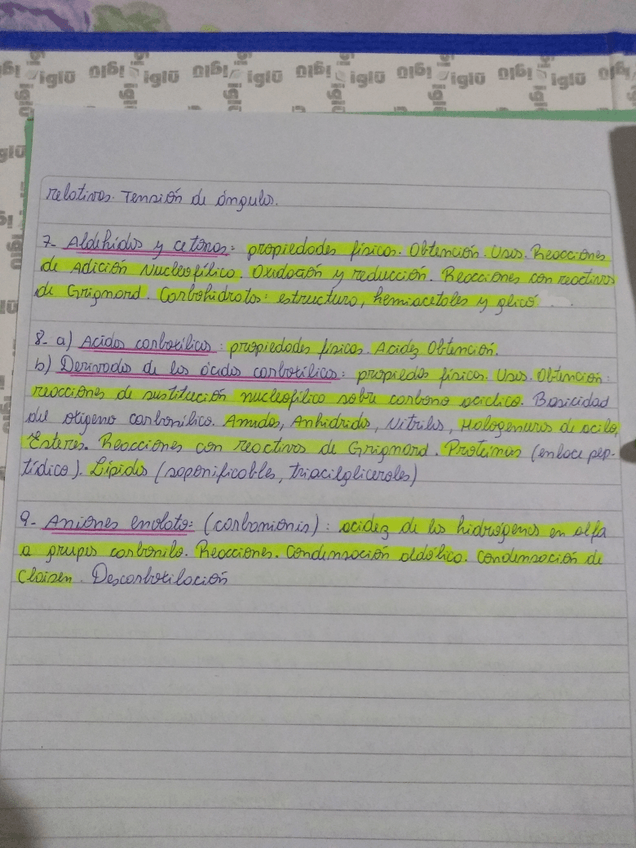 iglú iglú iglú iglú iglú iglú iglú iglú
relativos. Tensión de ángulo.
7- Aldehídos y cetonas: propiedades físicas. Obtención. Usos. Reacciones
de Adición Nucleofílica. Oxidación y reducción. Reacciones con reactivos
de Grignard. Carbohidratos: estructura, hemiacetales y
8- a) Acidos carboxílicos: propiedades físicas. Acidez. Obtención.
b) Derivados de los ácidos carboxílicos: propiedas físicas. Usos. Obtención:
reacciones de sustitución nucleofílica sobre carbono acídico. Basicidad
del oxígeno carbonílico. Amidas, Anhídridos, Nitrilos, Halogenuros de acilo,
Esteres. Reacciones con reactivos de Grignard. Proteínas (enlace pep-
tídico). Lípidos (saponificables, triacilgliceroles)
9- Aniones enolato: (carbanionis): acidez de los hidrógenos en alfa
a grupos carbonilo. Reacciones. Condensación aldólica. Condensación de
Claisen. Descarboxilación